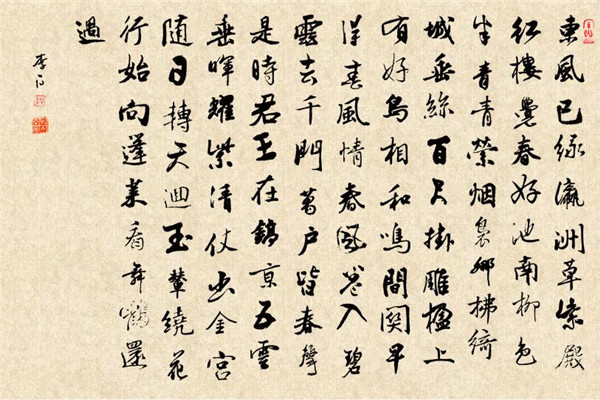 東風已綠瀛洲草紫殿
紅樓覺春好池南柳色
半青青縈烟裊娜拂綺
城垂絲百尺掛雕楹上
有好鳥相和鳴間関早
得春風情春風卷入碧
雲去千門萬戶皆春聲
是時君王在鎬京五雲
垂暉耀紫清仗出金宮
隨日轉天迴玉輦繞花
行始向蓬萊看舞鶴還
過
李白